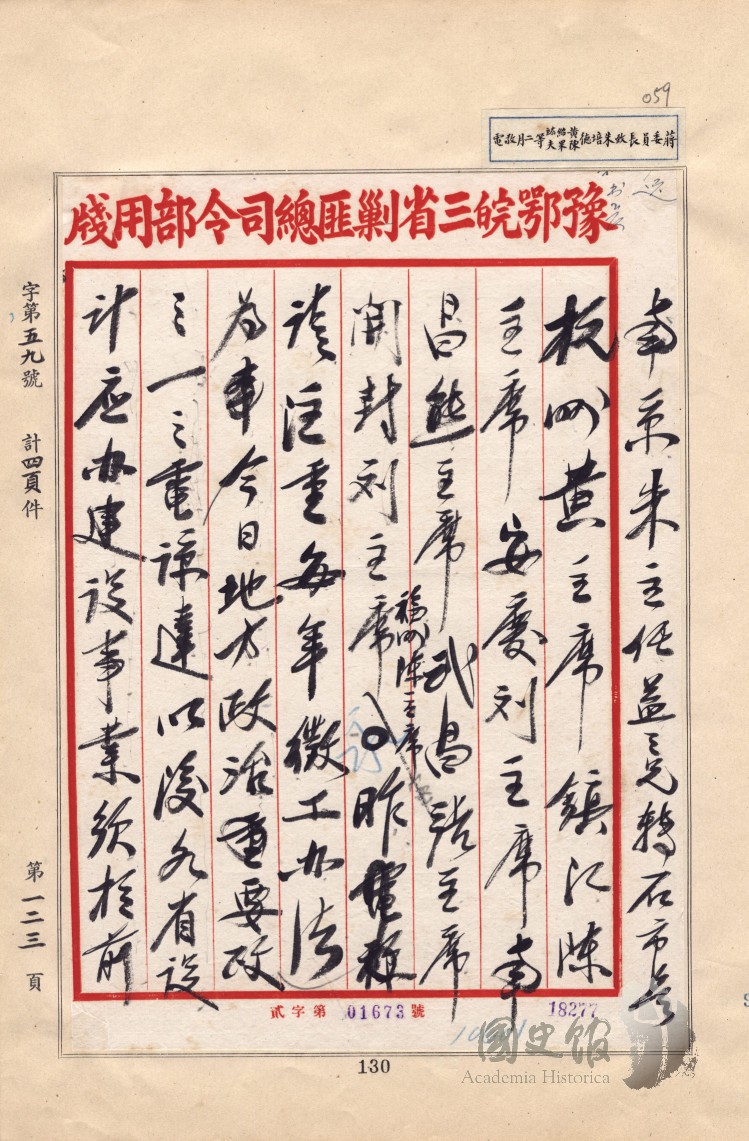 059
蔣委員長致朱培德黃紹竑陳果夫等二月敬電
豫鄂皖三省剿匪總司令部用牋
南京朱主任益之兄轉石市長
杭州黄主席鎮江陳
主席安慶刘主席南
昌熊主席武昌張主席
福州陳主席
開封刘主席 昨電
請注重每年徵工办法
為 今日地方政治重要政
之一之電諒達以後 省設
計应办建設事業須於前
字第五九號 計四頁件 第一二三頁
貳字第01673號
18277
130
國史館
Academia Historica